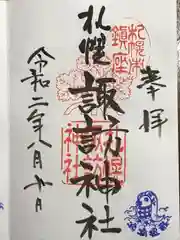 奉拝
札幌市
鎮座
札幌
諏訪神社
令和二年八月十日